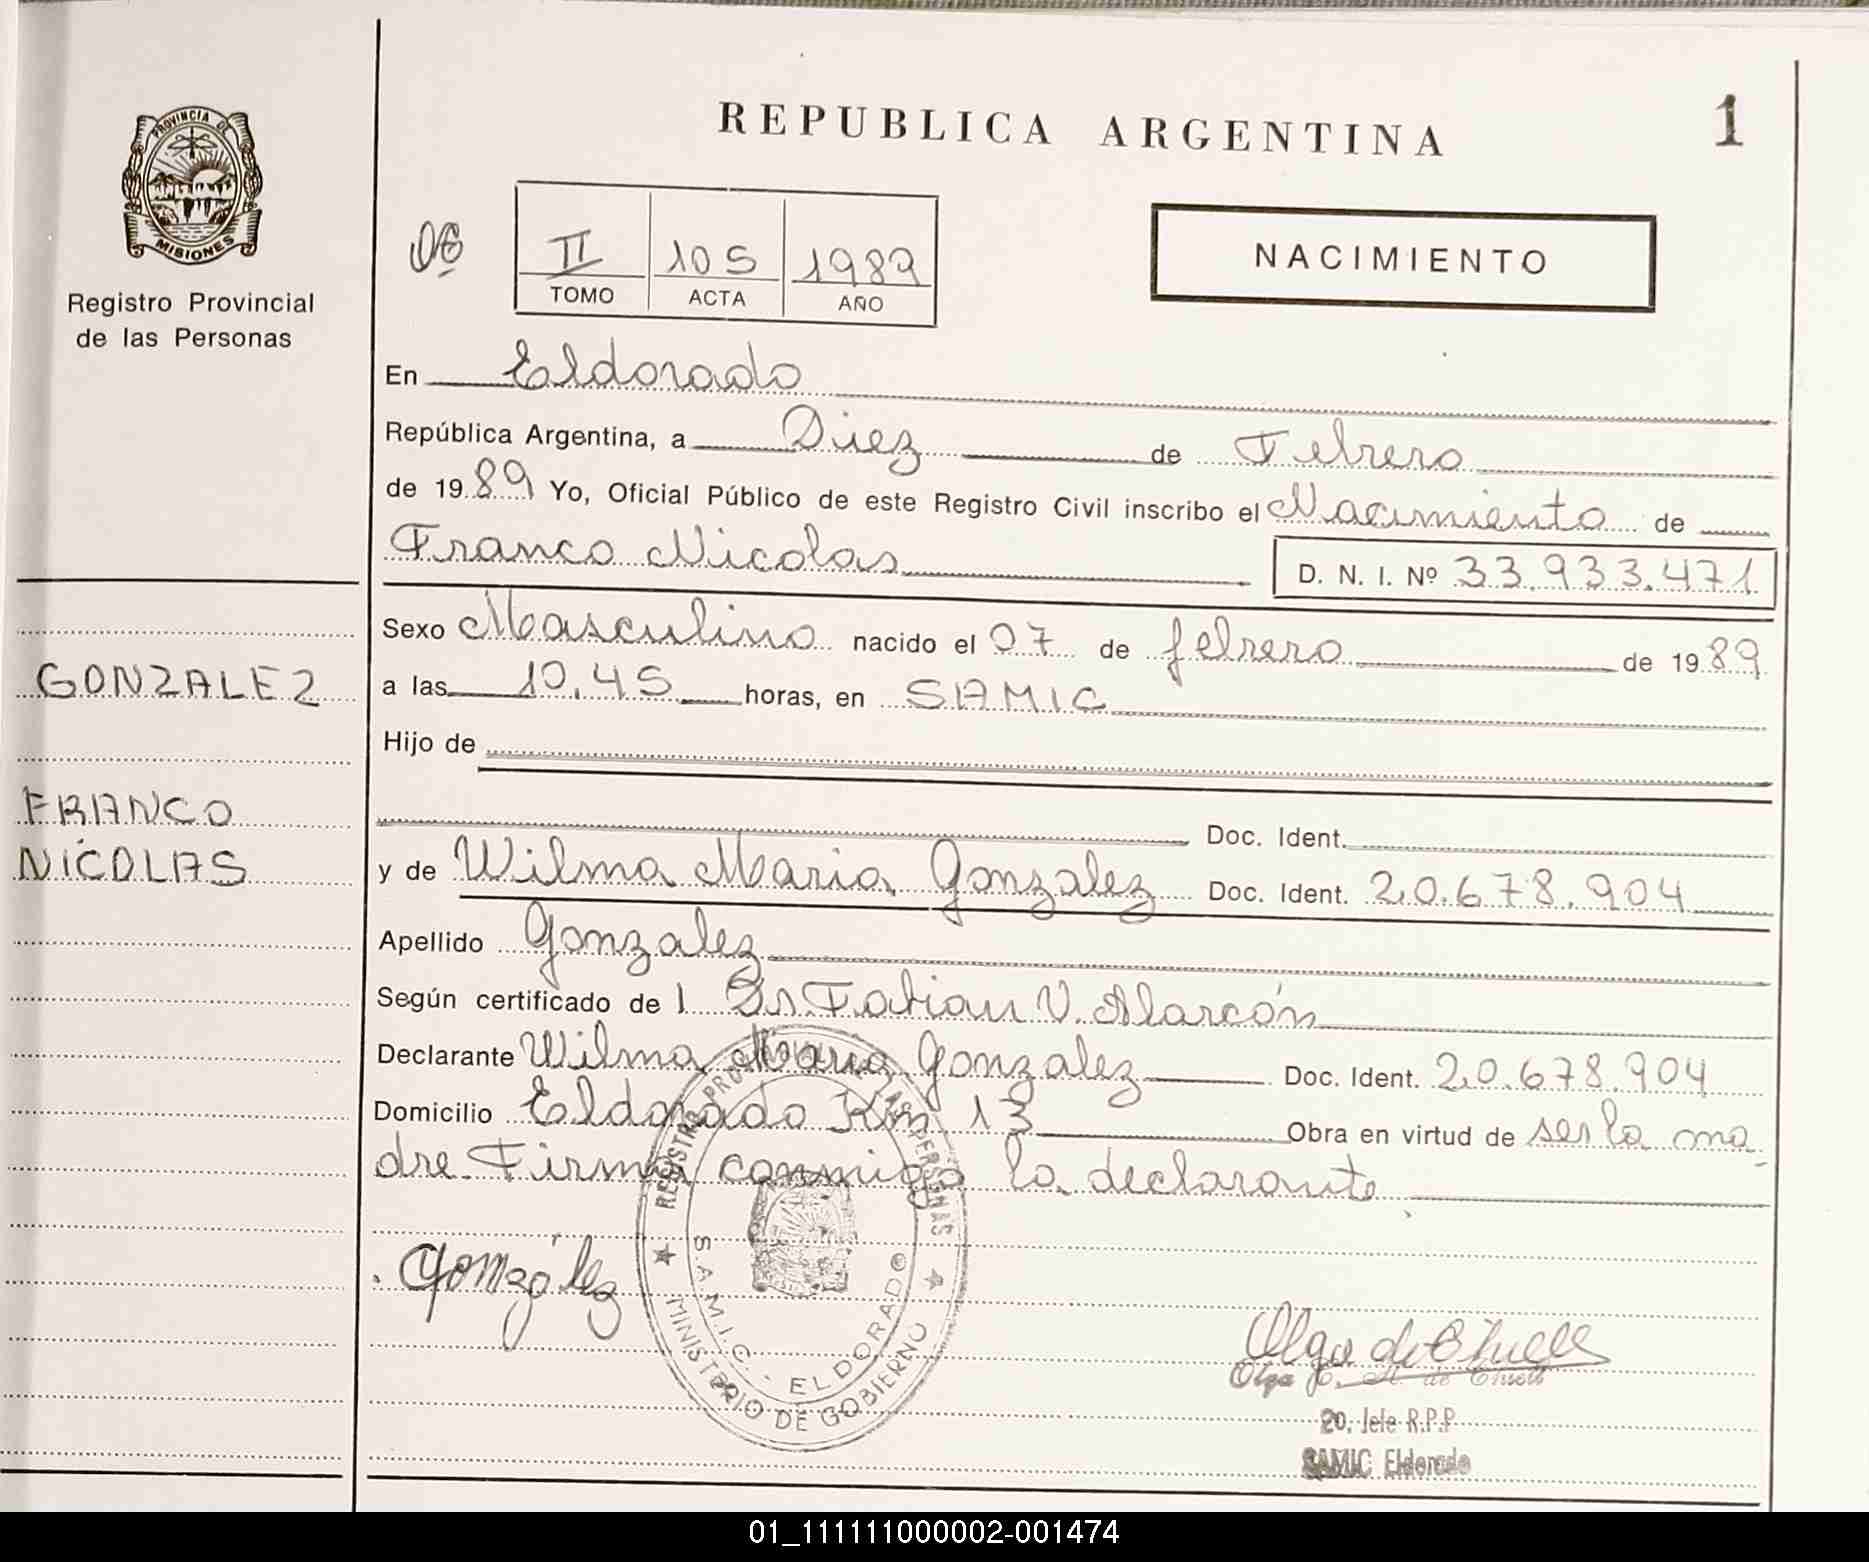 REPUBLICA ARGENTINA
1
PROVINCIA DE
MISIONES
Registro Provincial
de las Personas
06
II 105 1989
TOMO ACTA AÑO
NACIMIENTO
En Eldorado
República Argentina, a Diez de Febrero
de 1989 Yo, Oficial Público de este Registro Civil inscribo el Nacimiento de
Franco Nicolas D. N. I. Nº 33.933.471
Sexo Masculino nacido el 07 de febrero de 1989
GONZALEZ
a las 10.45 horas, en SAMIC
Hijo de
FRANCO
NICOLAS
Doc. Ident.
y de Wilma Maria Gonzalez Doc. Ident. 20.678.904
Apellido Gonzalez
Según certificado de l Dr. Fabian V. Alarcón
Declarante Wilma Maria Gonzalez Doc. Ident. 20.678.904
Domicilio Eldorado Km 13 Obra en virtud de ser la ma
dre. Firma conmigo la declarante
REGISTRO PROVINCIAL DE LAS PERSONAS
S.A.M.I.C. - ELDORADO
MINISTERIO DE GOBIERNO
González
Olga de
Olga de
20. Jefe R.P.P
SAMIC Eldorado
01_111111000002-001474